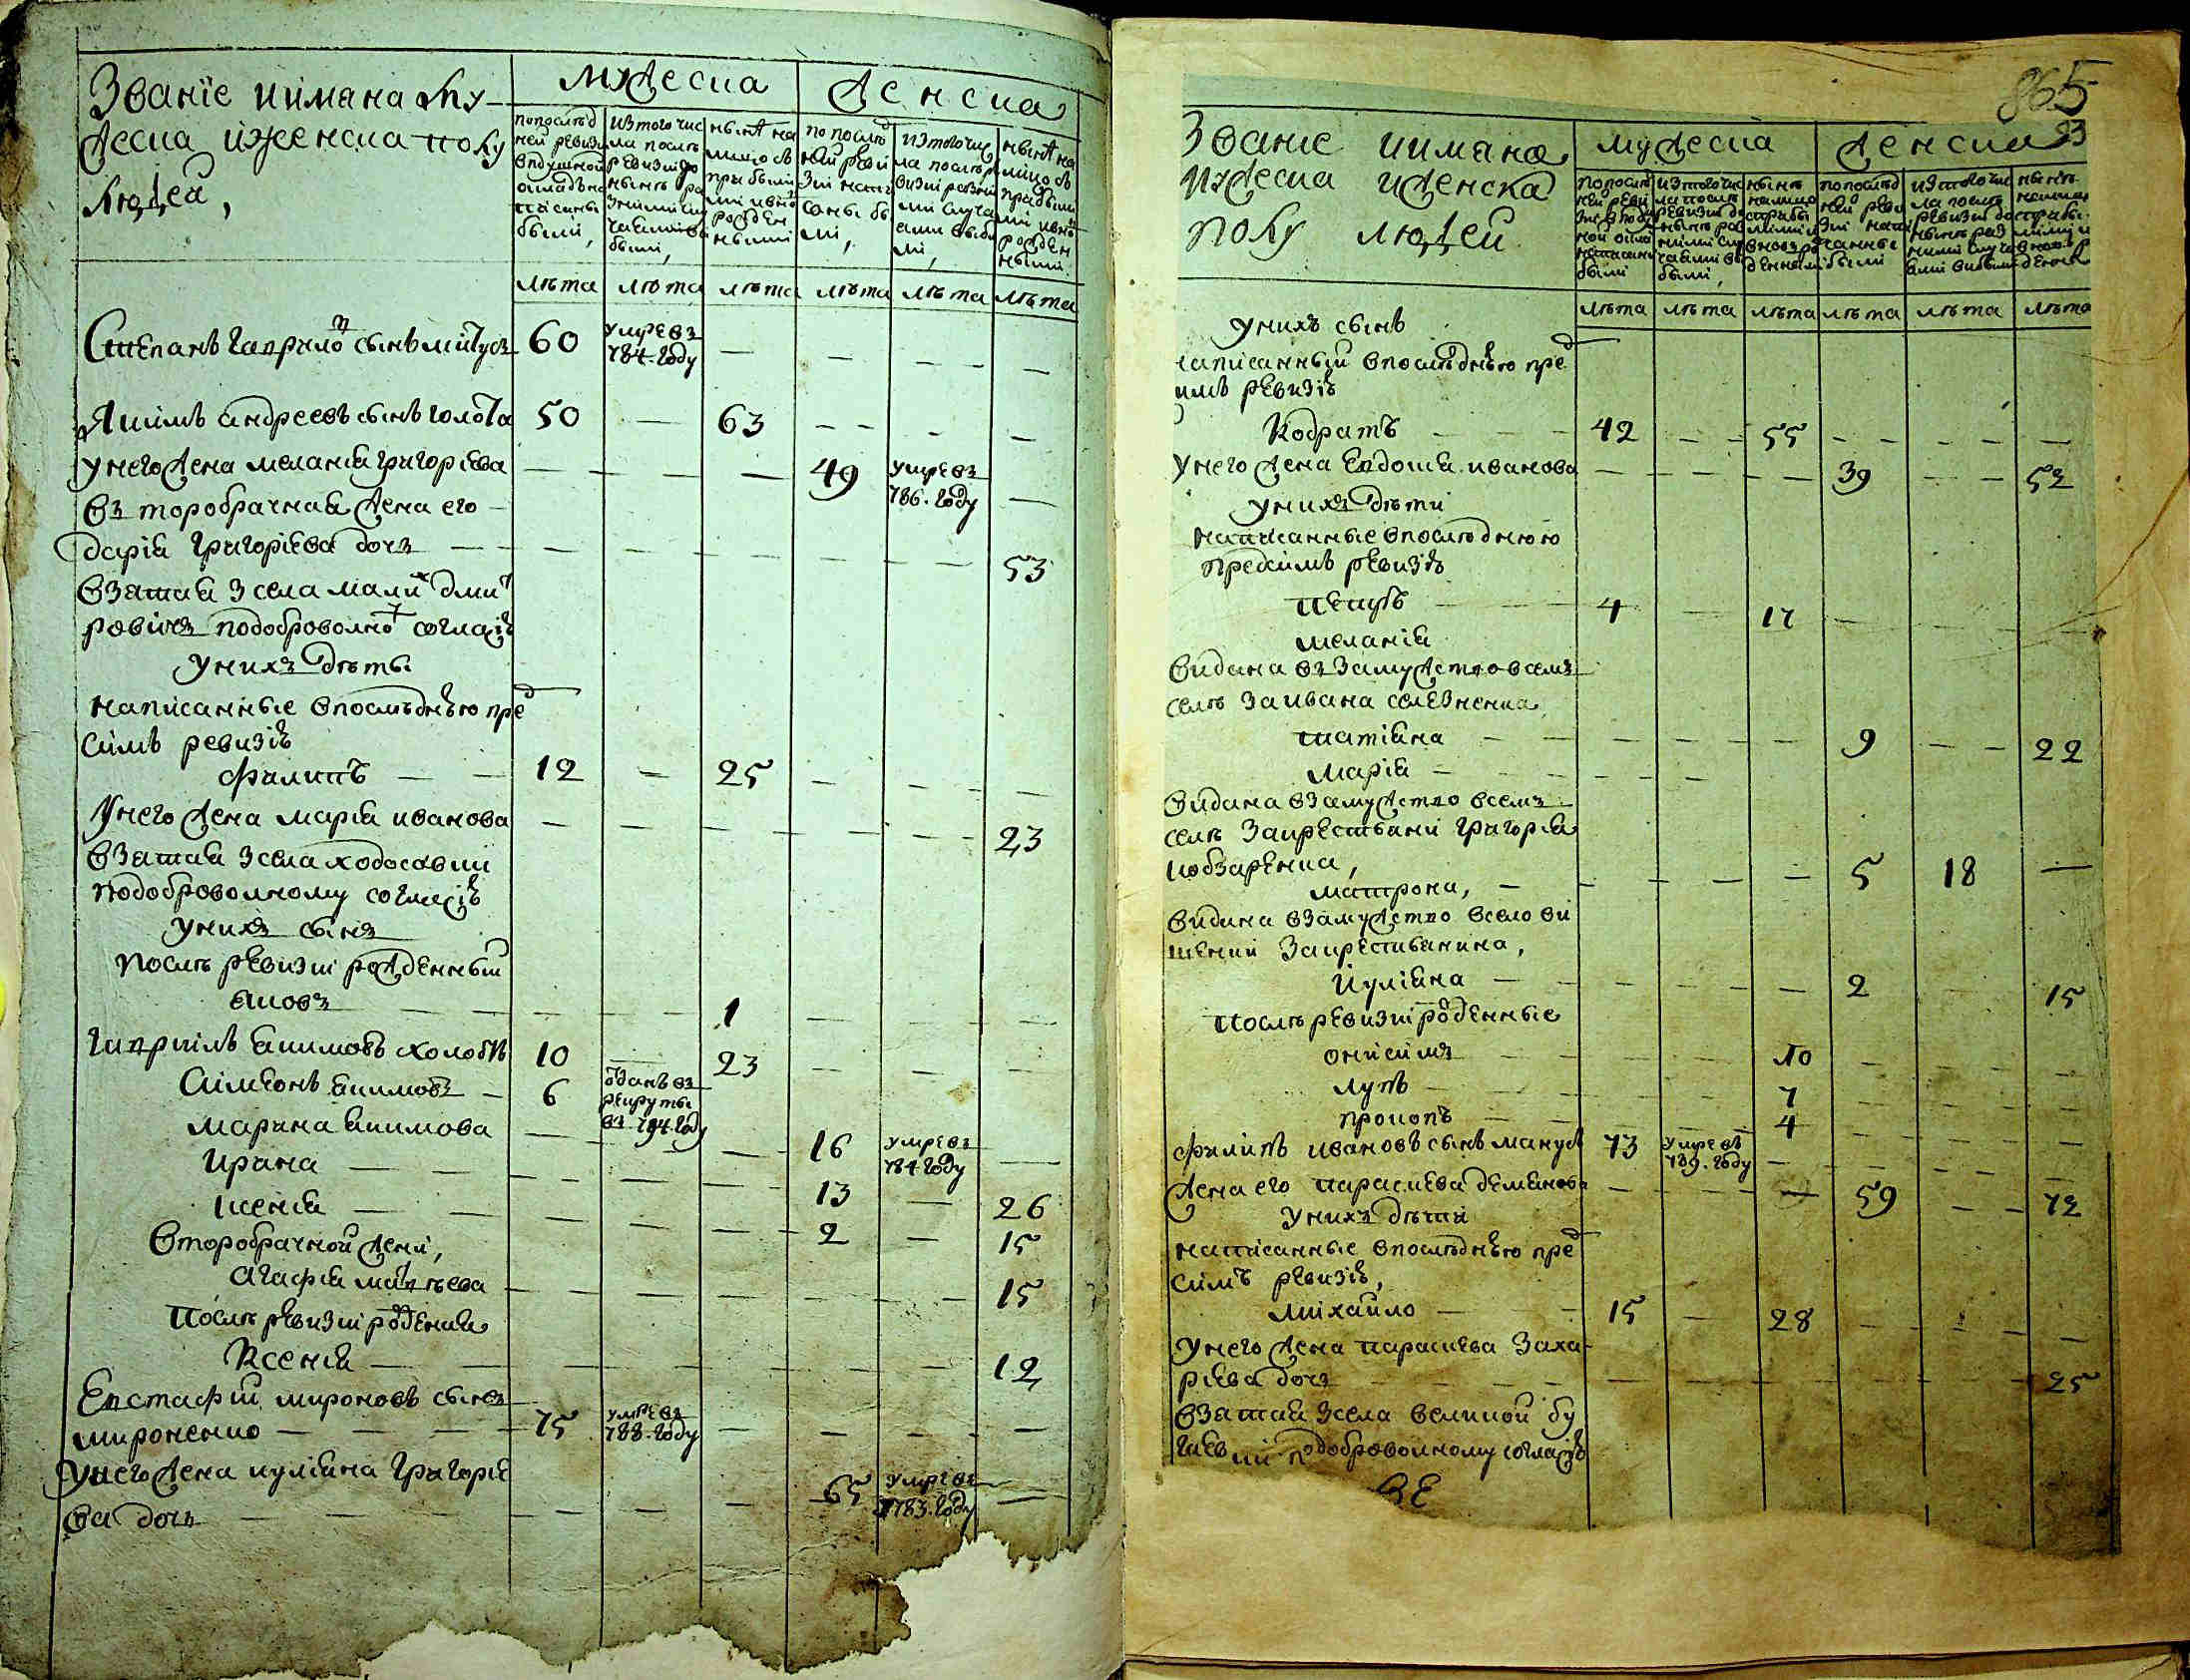 Званїе иимана му
жеска иженска полу
людей,
мужеска
женска
попослѣд
ней ревизи
вподушной
окладъ на
писаны
были,
изтого чис
ла послѣ
ревизїи до
нынѣ ра
зними слу
чаями вы
были,
нынѣ на
лицо съ
прибылы
ми ивно
рожден
ными
попослѣ
ней реви
зїи напи
саны бы
ли,
изтого чис
ла послѣ ре
визїи разны
ми случа
ями выбы
ли,
нынѣ на
лицо съ
прибылы
ми ивно
рожден
ными
лѣта лѣта лѣта лѣта лѣта лѣта
Степанъ Гаврилов сынъ 60 умре въ 784. году — — — —
Якимъ андреевъ сынъ голота 50 — 63 — — —
унего жена меланїя григорїева — — — 49 умре въ 786. году —
въторобрачная жена его
дарїя григорїева дочъ — — — — — 53
взятая зсела малих дмит
ровичъ подоброволному согласїю
унихъ дѣты
написанные впослѣднѣю пред
симъ ревизїю
филипъ 12 — 25 — — —
унего жена марїя иванова — — — — — 23
взятая зсела ходосовки
подоброволному согласїю
унихъ сынъ
послѣ ревизїи рожденный
яковъ — — 1 — — —
гаврїилъ якимовъ холостъ 10 — 23 — — —
симеонъ якимовъ 6 отданъ въ рекруты въ 794. году
марина якимова — — — 16 умре въ 784. году —
ирина — — — 13 — 26
ксенїя — — — 2 — 15
второбрачной жени,
агафїя матвѣева — — — — — 15
послѣ ревизїи рожденная
Ксенїя — — — — — 12
Евстафїй мироновъ сынъ
мироненко 75 умре въ 788. году — — — —
унего жена иулїяна григорїе
ва дочъ — — — 65 умре въ 1783. году —
865
93
Званїе иимана
мужеска иженска
полу людей
мужеска
женска
попослѣ
ней реви
зїи вподу
ной окла
написаны
были
изтого чис
ла послѣ
ревизїи до
нынѣ раз
ними слу
чаями вы
были,
нынѣ
налицо
сприбы
лыми и
вновъ ро
жденными
попослѣд
ней реви
зїи напи
санны
были
изтого чис
ла послѣ
ревизїи до
нынѣ раз
ними случа
ями выбыли
нынѣ
налицо
сприбы
лыми и
вновъ р
жденны
лѣта лѣта лѣта лѣта лѣта лѣта
унихъ сынъ
написанный впослѣднѣю пред
симъ ревизїю
Кодратъ 42 — 55 — — —
унего жена Евдокия иванова — — — 39 — 52
унихъ дѣти
написанные впослѣднюю
предсимъ ревизїю
4 — 17 — — —
меланїя
видана въ замужество всемъ
селѣ заивана селезненка
татїяна — — — 9 — 22
марїя
видана взамужство всемъ
селѣ закрестьяни григорїя
кобзаренка, — — — 5 18 —
матрона,
видана взамужство всело ви
шенки закрестьянина,
Иулїяна — — — 2 — 15
послѣ ревизїи рожденные
онисимъ — — 10 — — —
лупъ — — 7 — — —
прокопъ — — 4 — — —
филипъ ивановъ сынъ 73 умре въ 789. году — — — —
жена его параскева демянова — — — 59 — 72
унихъ дѣти
написанные впослѣднѣю пред
симъ ревизїю,
михайло 15 — 28 — — —
унего жена параскева заха
рїева дочъ — — — — — 25
взятая зсела великой бу
гаевки подоброволному согласїю
ЗЕ